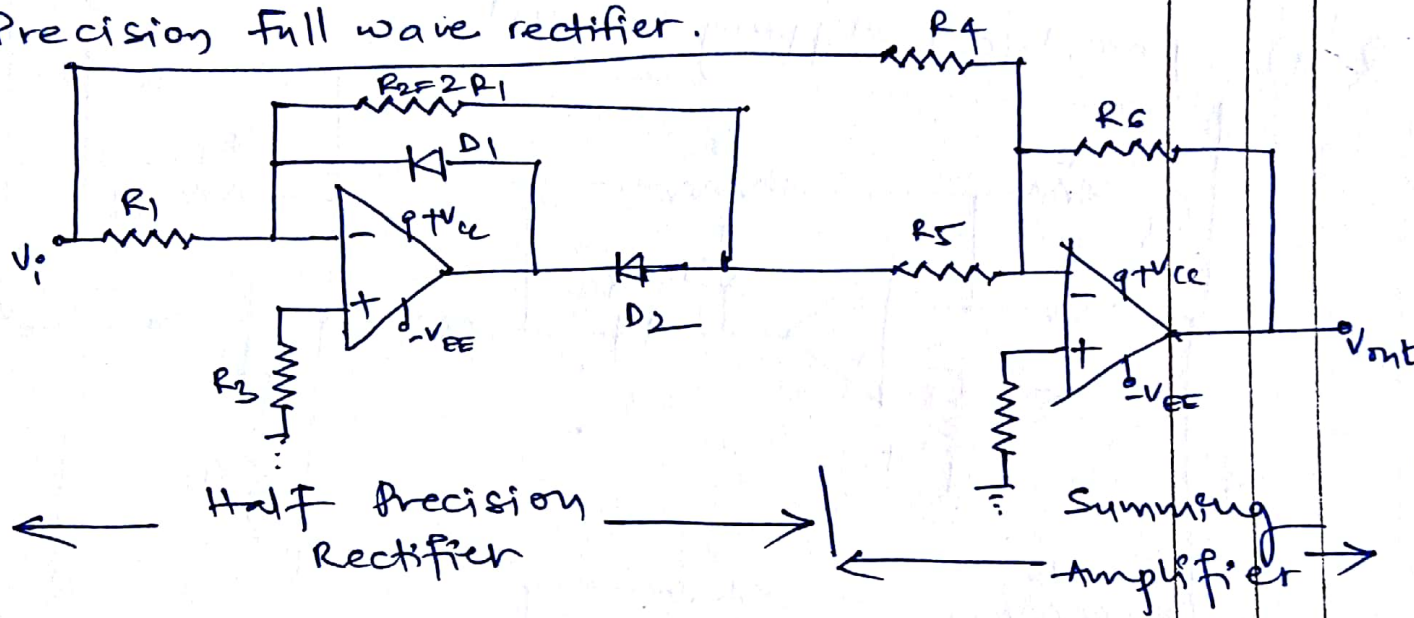 Precision full wave rectifier.
R4
R2=2R1
R6
D1
R1
+Vcc
Vi
R5
+Vcc
D2
-VEE
Vout
R3
-VEE
Half Precision
Rectifier
Summing
Amplifier